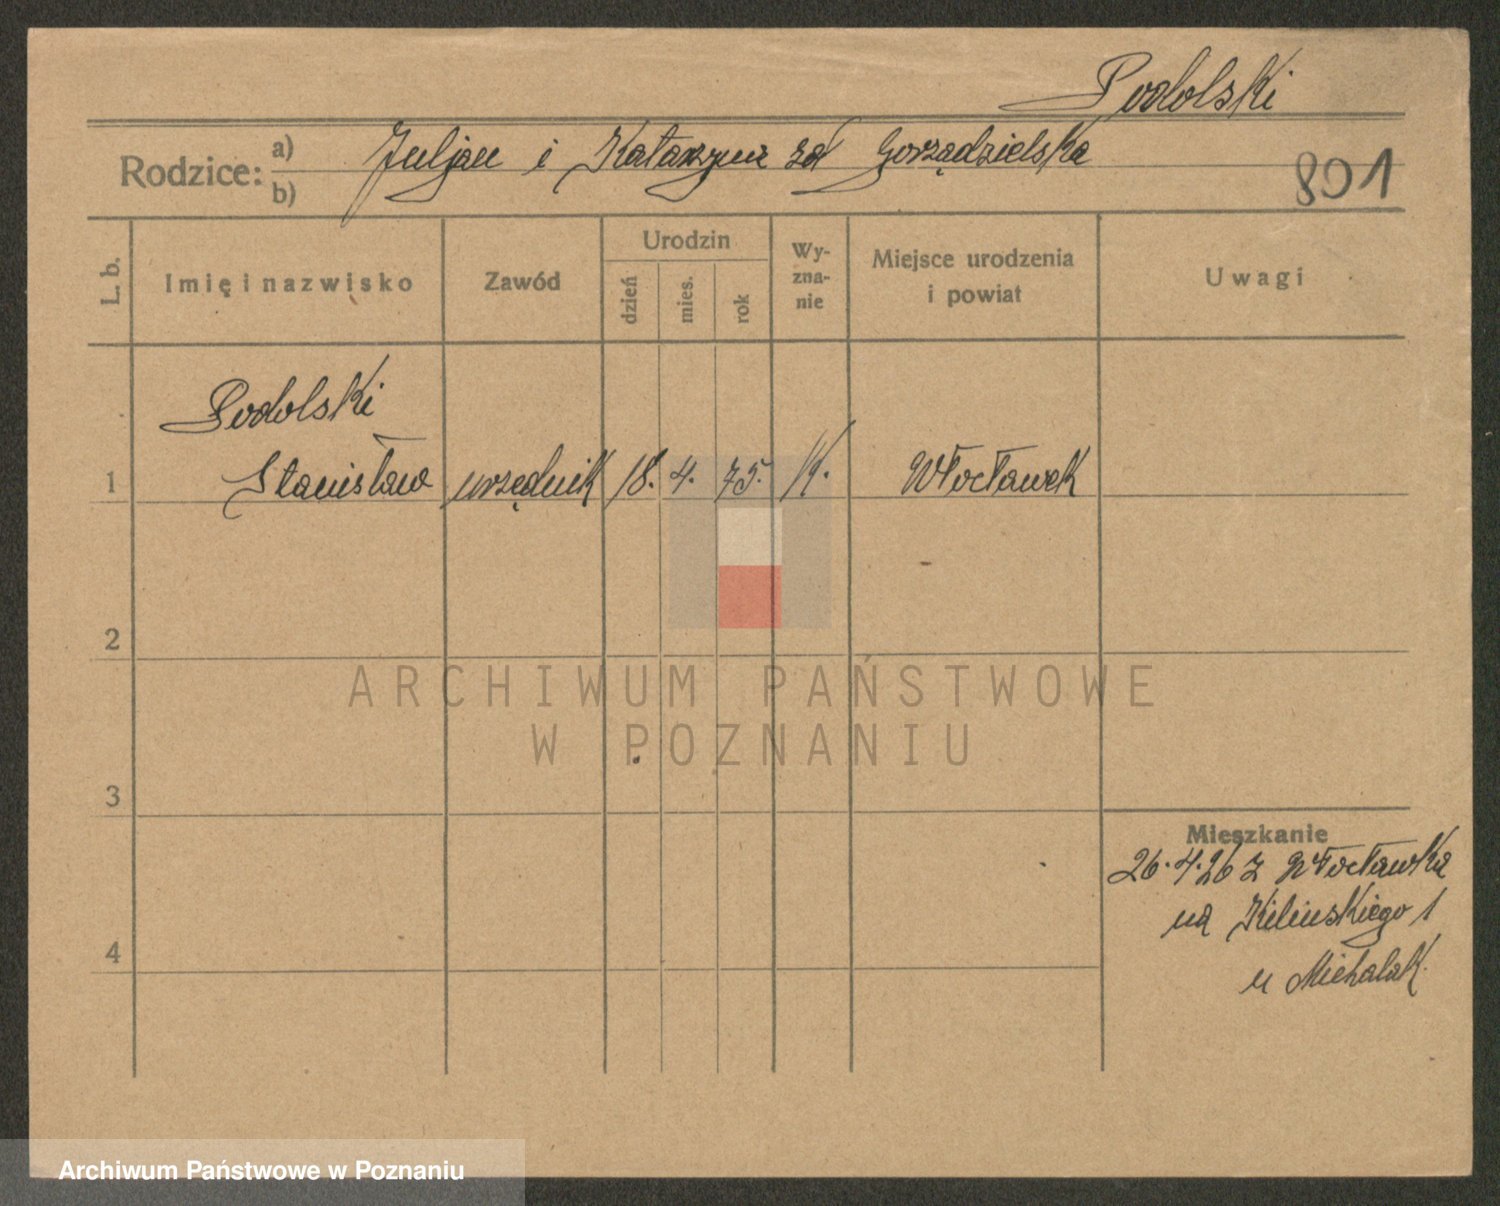 Podolski
Rodzice:
a)
b)
Juljan i Katarzyna zd Gorządzielska
801
L. b.
Imię i nazwisko
Zawód
Urodzin
dzień
mies.
rok
Wy-
zna-
nie
Miejsce urodzenia
i powiat
Uwagi
Podolski
1 Stanisław urzędnik 18. 4. 75. K. Włocławek
2
3
4
Mieszkanie
26.4.26 z Włocławka
na Kilińskiego 1
u Michalak.
ARCHIWUM PAŃSTWOWE
W POZNANIU
Archiwum Państwowe w Poznaniu